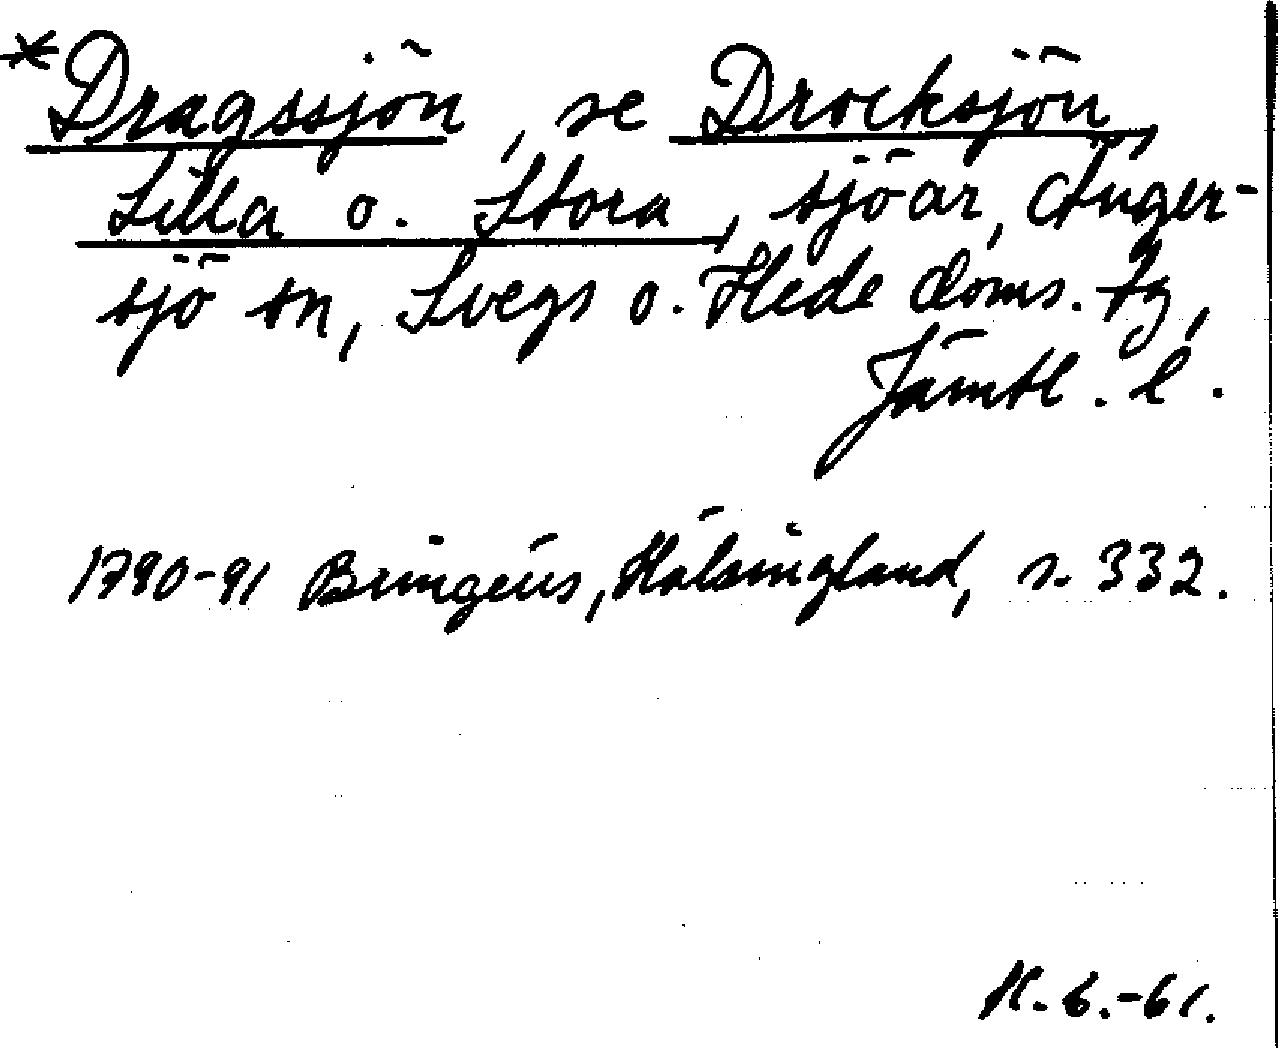 *Dragssjön, se Drocksjön,
Lilla o. Stora, sjöar, Ånger-
sjö sn, Svegs o. Hede doms. tg,
Jämtl. l.
1790-91 Bringéus, Hälsingland, s. 332.
H. B. -61.